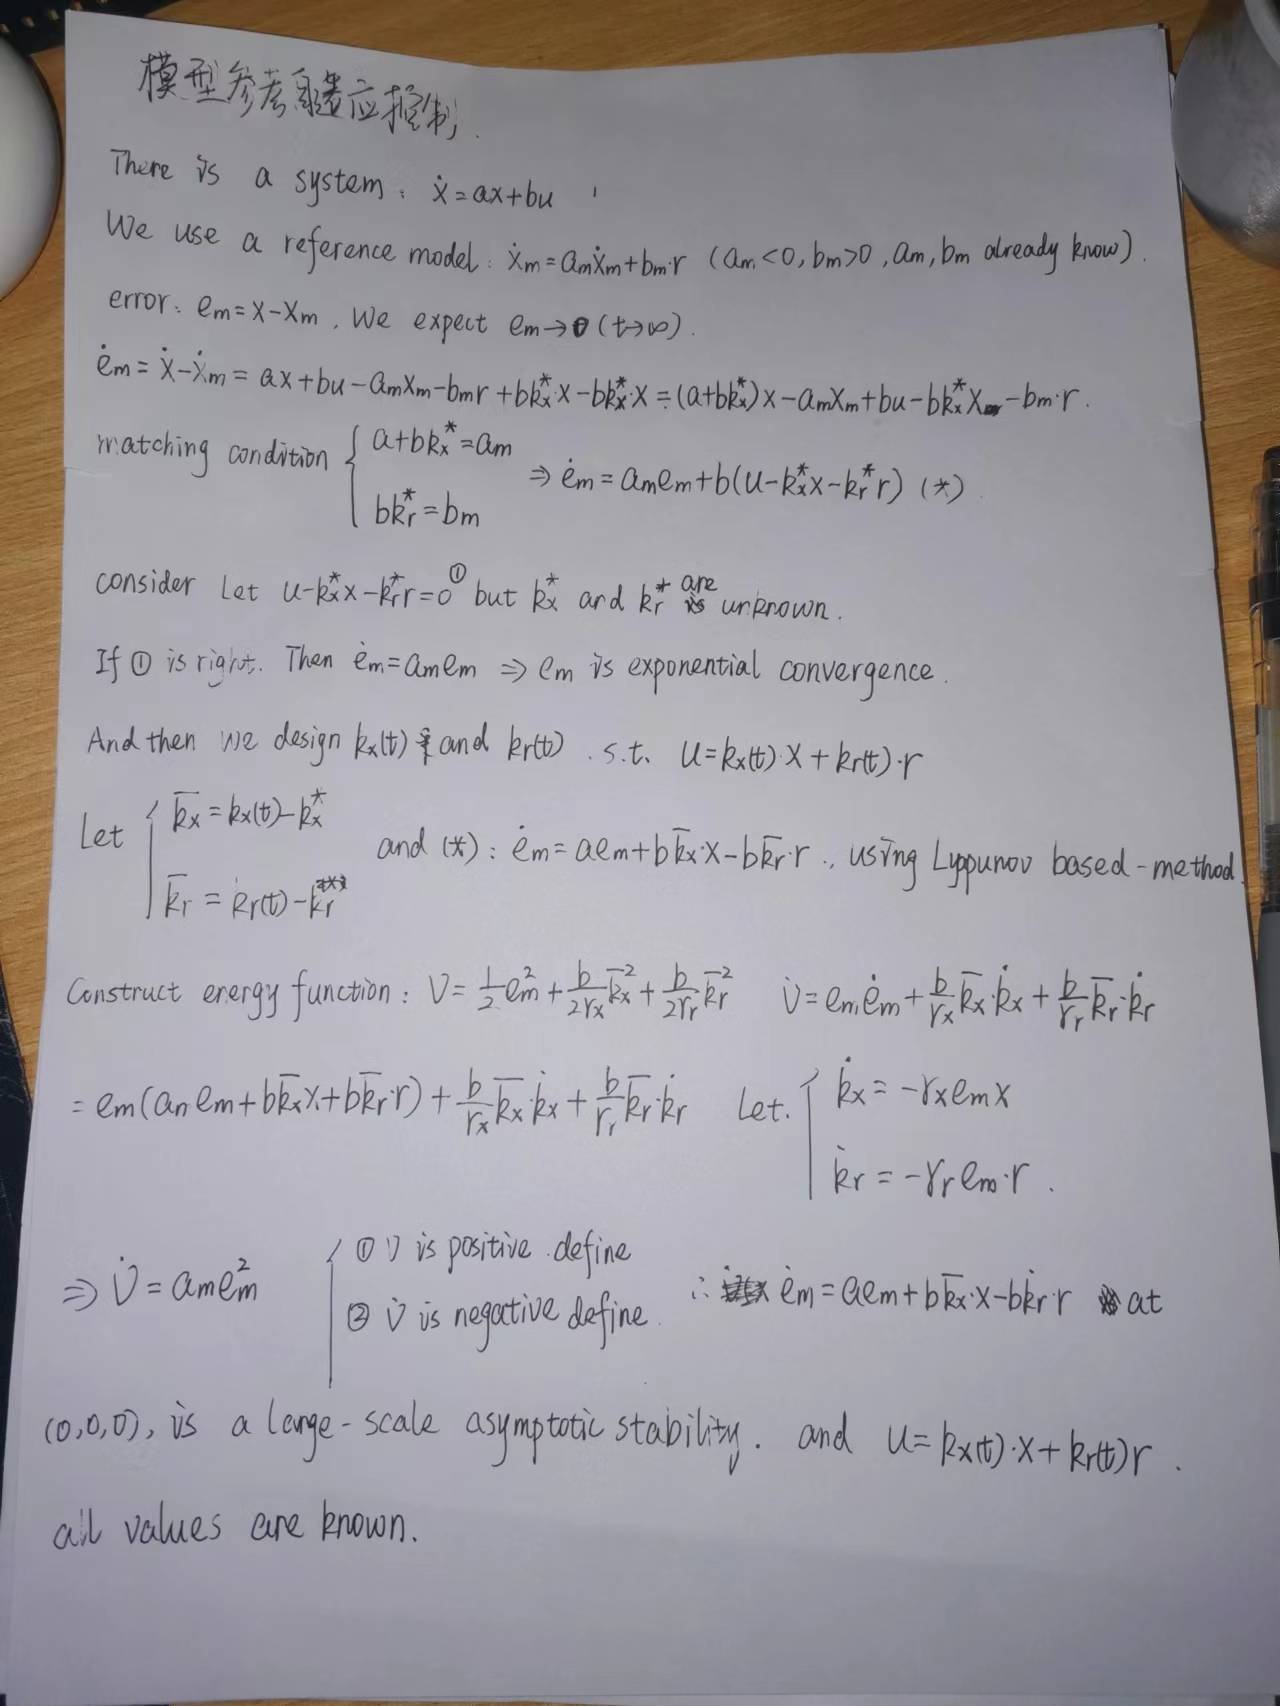 模型参考自适应控制.
There is a system: ẋ=ax+bu
We use a reference model: ẋm=amẋm+bm·r (am<0, bm>0, am, bm already know).
error: em=x-xm. We expect em→0 (t→∞).
ėm=ẋ-ẋm=ax+bu-amxm-bmr+bkx*·x-bkx*·x=(a+bkx*)x-amxm+bu-bkx*x-bm·r.
matching condition { a+bkx*=am
bkr*=bm
⇒ ėm=amem+b(u-kx*x-kr*r) (*)
consider Let u-kx*x-kr*r=0① but kx* and kr* are unknown.
If ① is right. Then ėm=amem ⇒ em is exponential convergence.
And then we design kx(t) and kr(t). s.t. u=kx(t)·x+kr(t)·r
Let { k̅x=kx(t)-kx*
k̅r=kr(t)-kr*
and (*): ėm=aem+bk̅x·x-bk̅r·r., using Lyppunov based-method.
Construct energy function: V=½em²+b/2γx k̅x²+b/2γr k̅r² V̇=em·ėm+b/γx k̅x·k̇x+b/γr k̅r·k̇r
=em(amem+bk̅x·x+bk̅r·r)+b/γx k̅x·k̇x+b/γr k̅r·k̇r Let. { k̇x=-γxemx
k̇r=-γrem·r.
⇒ V̇=amem² { ① V is positive define
② V̇ is negative define.
∴ ėm=aem+bk̅x·x-bk̇r·r at
(0,0,0), is a large-scale asymptotic stability. and u=kx(t)·x+kr(t)r.
all values are known.